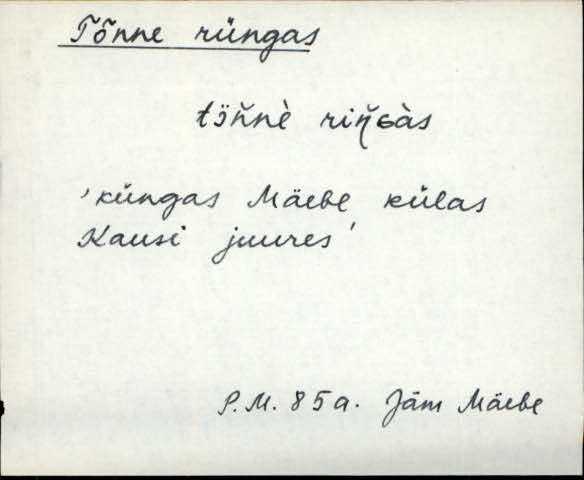 Tõnne rüngas
tɔ̈n̆nè riŋ̆ɢàs
'küngas Mäebe külas
Kausi juures'
P.M. 85a. Jäm Mäebe